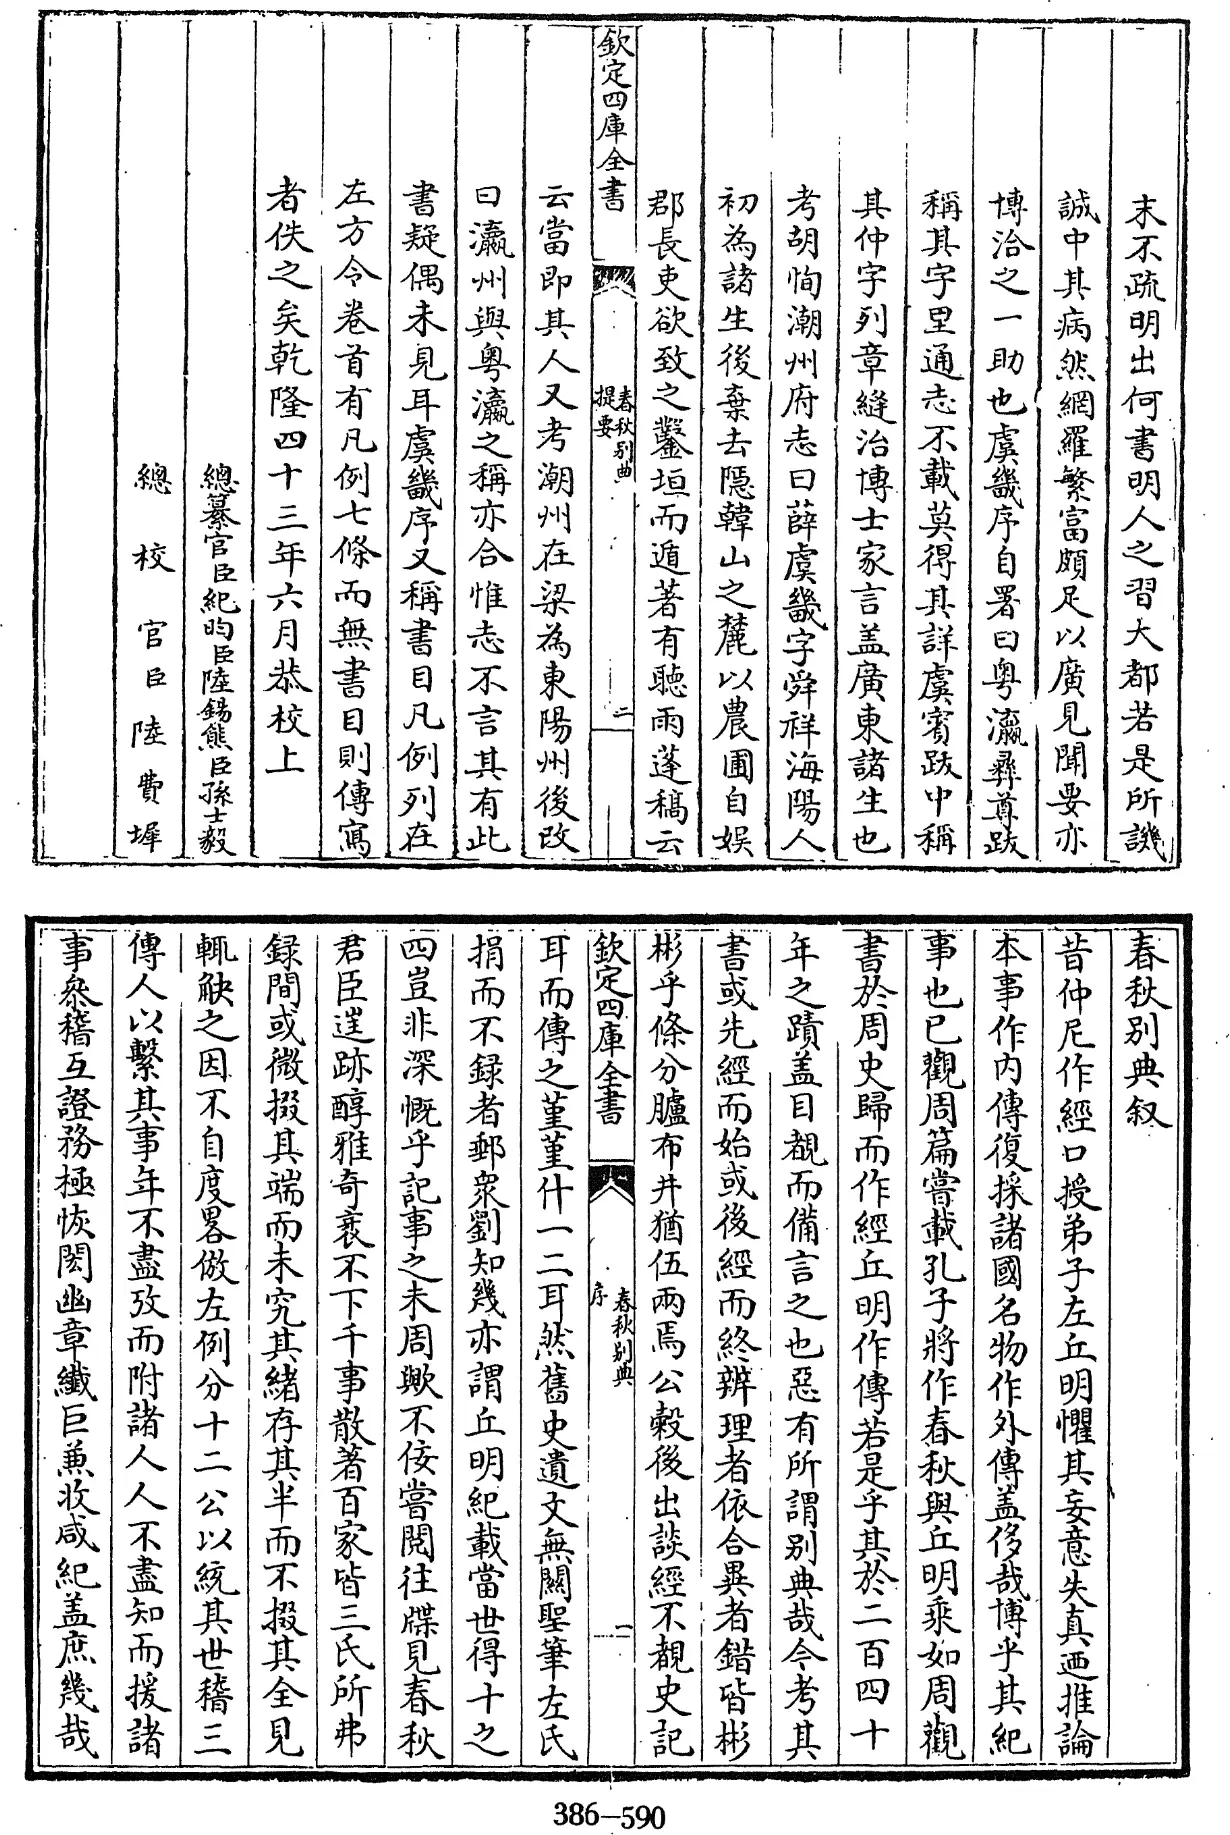 末不疏明出何書明人之習大都若是所譏
誠中其病然網羅繁富頗足以廣見聞要亦
博洽之一助也虞畿序自署曰粤瀛彝尊跋
稱其字里通志不載莫得其詳虞賓跋中稱
其仲字列章縫治博士家言盖廣東諸生也
考胡恂潮州府志曰薛虞畿字舜祥海陽人
初為諸生後棄去隠韓山之麓以農圃自娱
郡長吏欲致之鑿垣而遁著有聽雨蓬稿云
欽定四庫全書
春秋别典
提要
二
云當即其人又考潮州在梁為東陽州後改
曰瀛州與粤瀛之稱亦合惟志不言其有此
書疑偶未見耳虞畿序又稱書目凡例列在
左方今卷首有凡例七條而無書目則傳寫
者佚之矣乾隆四十三年六月恭校上
總纂官臣紀昀臣陸錫熊臣孫士毅
總校官臣陸費墀
春秋别典叙
昔仲尼作經口授弟子左丘明懼其妄意失真迺推論
本事作内傳復採諸國名物作外傳盖侈哉博乎其紀
事也已觀周篇嘗載孔子將作春秋與丘明乘如周觀
書於周史歸而作經丘明作傳若是乎其於二百四十
年之蹟盖目覩而備言之也惡有所謂别典哉今考其
書或先經而始或後經而終辨理者依合異者錯皆彬
彬乎條分臚布井猶伍兩焉公榖後出談經不覩史記
欽定四庫全書
春秋别典
序
一
耳而傳之堇堇什一二耳然舊史遺文無關聖筆左氏
捐而不録者郵衆劉知幾亦謂丘明紀載當世得十之
四豈非深慨乎記事之未周歟不佞嘗閱往牒見春秋
君臣迋跡醇雅奇衺不下千事散著百家皆三氏所弗
録間或微掇其端而未究其緒存其半而不掇其全見
輒觖之因不自度畧倣左例分十二公以統其世稽三
傳人以繫其事年不盡攷而附諸人人不盡知而援諸
事叅稽互證務極恢閎幽章纎巨兼收咸紀盖庶幾哉
386-590